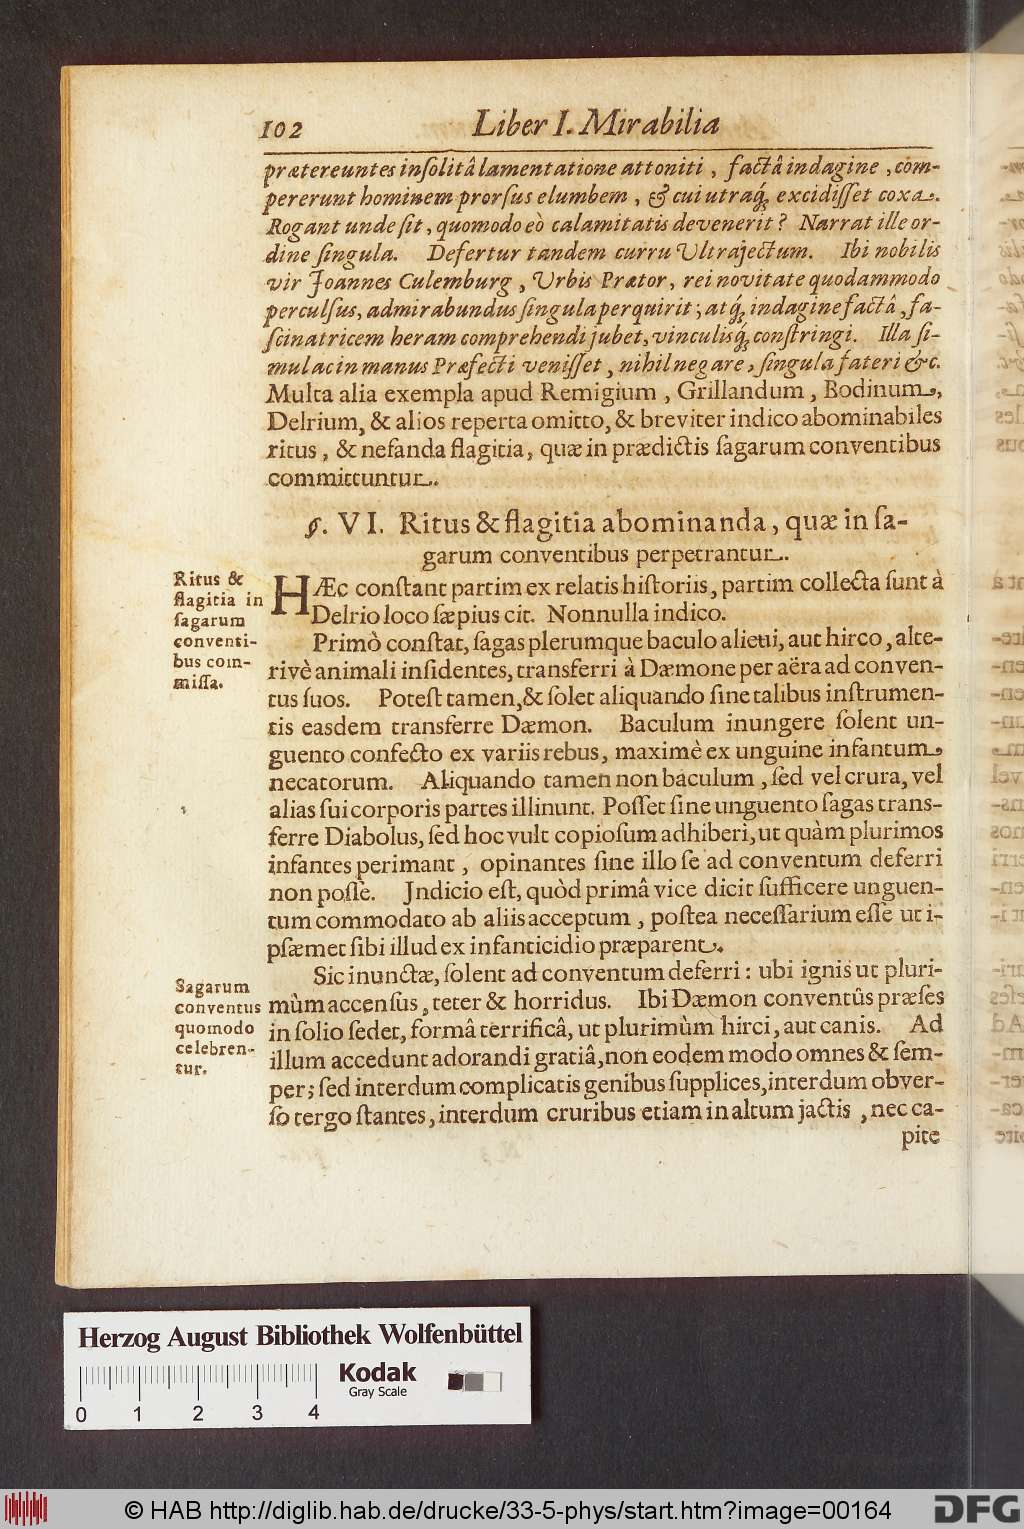 102 Liber I. Mirabilia
prætereuntes inſolitâ lamentatione attoniti, factâ indagine, com-
pererunt hominem prorſus elumbem, & cui utraq́; excidiſſet coxa.
Rogant unde ſit, quomodo eò calamitatis devenerit? Narrat ille or-
dine ſingula. Defertur tandem curru Ultrajectum. Ibi nobilis
vir Joannes Culemburg, Urbis Prætor, rei novitate quodammodo
perculſus, admirabundus ſingula perquirit; atq́; indagine factâ, fa-
ſcinatricem heram comprehendi jubet, vinculisq́; conſtringi. Illa ſi-
mulac in manus Præfecti veniſſet, nihil negare, ſingula fateri &c.
Multa alia exempla apud Remigium, Grillandum, Bodinum,
Delrium, & alios reperta omitto, & breviter indico abominabiles
ritus, & nefanda flagitia, quæ in prædictis ſagarum conventibus
committuntur.
§. VI. Ritus & flagitia abominanda, quæ in ſa-
garum conventibus perpetrantur.
Ritus &
flagitia in
ſagarum
conventi-
bus com-
miſſa.
HÆc conſtant partim ex relatis hiſtoriis, partim collecta ſunt à
Delrio loco ſæpius cit. Nonnulla indico.
Primò conſtat, ſagas plerumque baculo alicui, aut hirco, alte-
rivè animali inſidentes, transferri à Dæmone per aëra ad conven-
tus ſuos. Poteſt tamen, & ſolet aliquando ſine talibus inſtrumen-
tis easdem transferre Dæmon. Baculum inungere ſolent un-
guento confecto ex variis rebus, maximè ex unguine infantum
necatorum. Aliquando tamen non baculum, ſed vel crura, vel
alias ſui corporis partes illinunt. Poſſet ſine unguento ſagas trans-
ferre Diabolus, ſed hoc vult copioſum adhiberi, ut quàm plurimos
infantes perimant, opinantes ſine illo ſe ad conventum deferri
non poſſe. Jndicio eſt, quòd primâ vice dicit ſufficere unguen-
tum commodato ab aliis acceptum, poſtea neceſſarium eſſe ut i-
pſæmet ſibi illud ex infanticidio præparent.
Sagarum
conventus
quomodo
celebren-
tur.
Sic inunctæ, ſolent ad conventum deferri: ubi ignis ut pluri-
mùm accenſus, teter & horridus. Ibi Dæmon conventûs præſes
in ſolio ſedet, formâ terrificâ, ut plurimùm hirci, aut canis. Ad
illum accedunt adorandi gratiâ, non eodem modo omnes & ſem-
per; ſed interdum complicatis genibus ſupplices, interdum obver-
ſo tergo ſtantes, interdum cruribus etiam in altum jactis, nec ca-
pite
Herzog August Bibliothek Wolfenbüttel
Kodak
Gray Scale
0 1 2 3 4
© HAB http://diglib.hab.de/drucke/33-5-phys/start.htm?image=00164
DFG